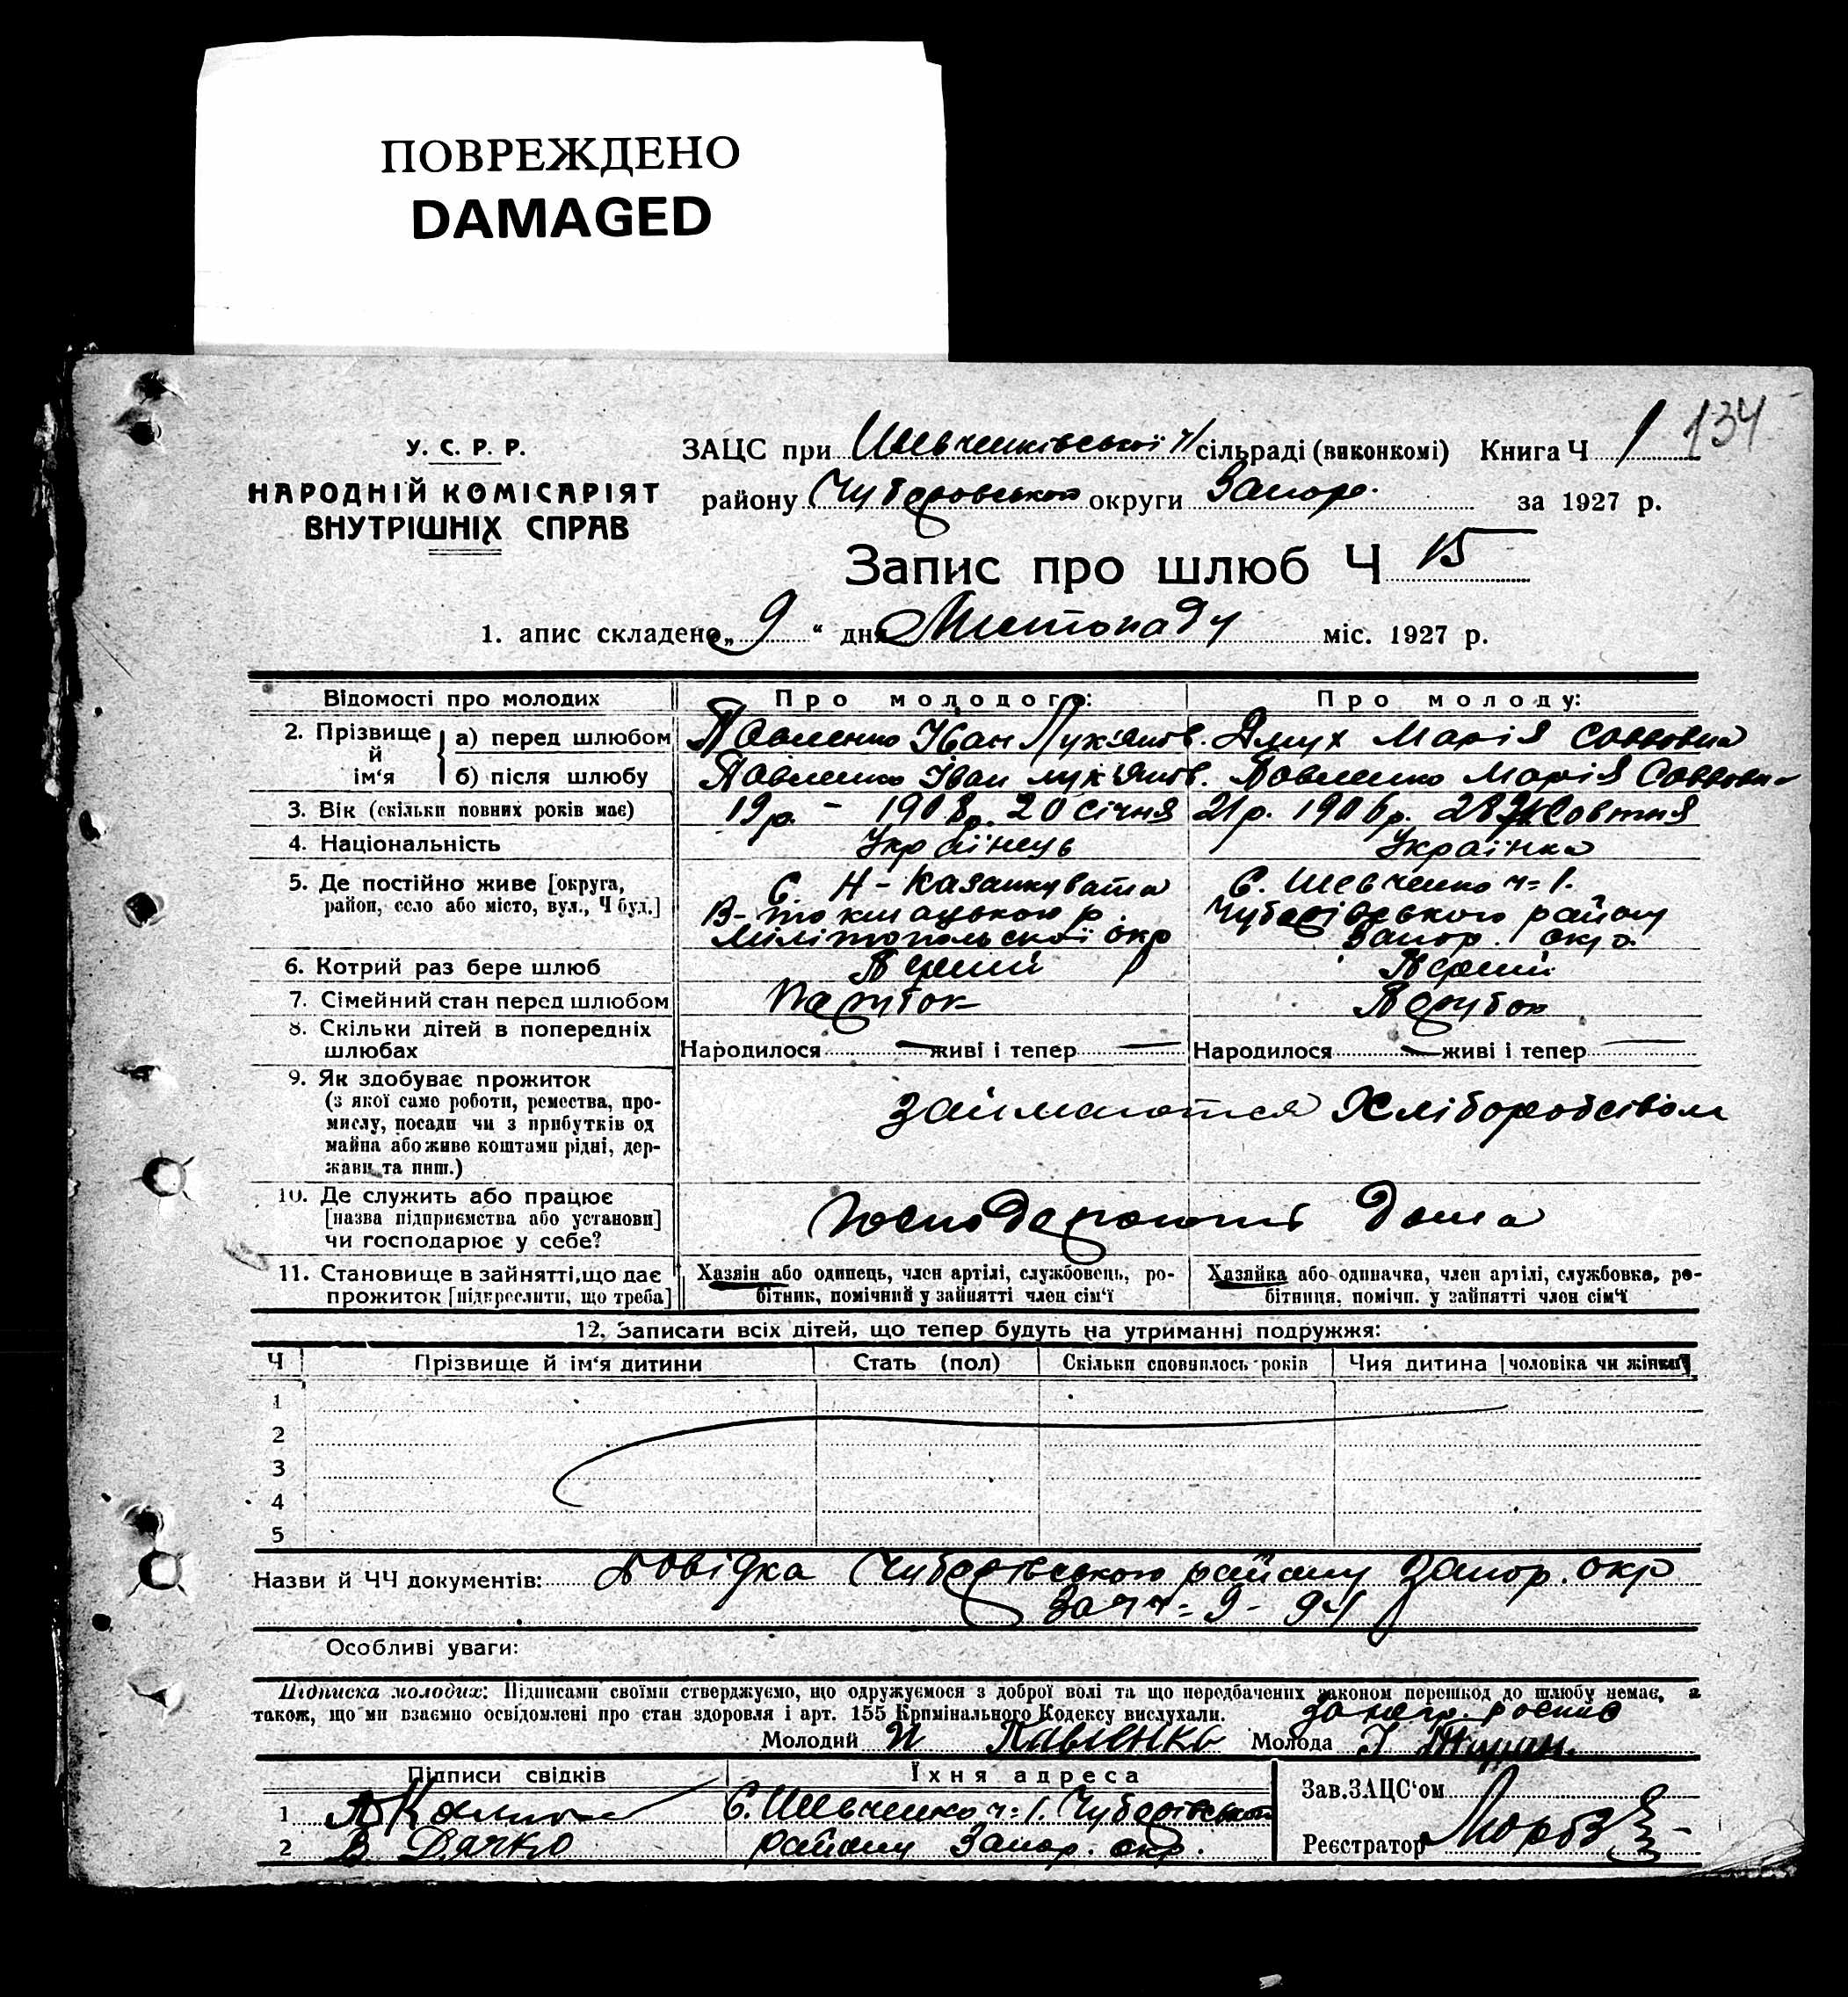 ПОВРЕЖДЕНО
DAMAGED
134
У. С. Р. Р.
НАРОДНІЙ КОМІСАРІЯТ
ВНУТРІШНІХ СПРАВ
ЗАЦС при Шевченківської ч/ сільраді (виконкомі) Книга Ч 1
району Чубарівського округи Запор. за 1927 р.
Запис про шлюб Ч 15
1. апис складено „ 9 “ дня Листопаду міс. 1927 р.
Відомості про молодих Про молодого: Про молоду:
2. Прізвище й ім‘я а) перед шлюбом Павленко Іван Лукянов. Марія Саввовна
б) після шлюбу Павленко Іван лукянов. Павленко Марія Саввовна
3. Вік (скільки повних років має) 19 р. – 1908 р. 20 січня 21 р. 1906 р. 28 Жовтня
4. Національність Українець Українка
5. Де постійно живе [округа, район, село або місто, вул., Ч буд.]
С. Н-Казанкувата
В-токмацького р.
Мілітопольської окр
С. Шевченко ч=1.
Чубарівського району
Запор. окр.
6. Котрий раз бере шлюб Перший Перший
7. Сімейний стан перед шлюбом Парубок Парубок
8. Скільки дітей в попередніх шлюбах Народилося — живі і тепер — Народилося — живі і тепер —
9. Як здобуває прожиток
(з якої саме роботи, ремества, про-
мислу, посади чи з прибутків од
майна або живе коштами рідні, дер-
жави та инш.)
Займаються Хліборобством
10. Де служить або працює
[назва підприємства або установи]
чи господарює у себе?
Господарюють Дома
11. Становище в зайнятті, що дає
прожиток [підкреслити, що треба]
Хазяїн або одинець, член артілі, службовець, ро-
бітник, помічний у зайнятті член сім‘ї
Хазяйка або одиначка, член артілі, службовка, ро-
бітниця, помічн. у зайнятті член сім‘ї
12. Записати всіх дітей, що тепер будуть на утриманні подружжя:
Ч Прізвище й ім‘я дитини Стать (пол) Скільки сповнилось років Чия дитина [чоловіка чи жінки]
1
2
3
4
5
Назви й ЧЧ документів: Довідка Чубарівського району Запор. окр
За ч= 9-94
Особливі уваги:
Підписка молодих: Підписами своїми стверджуємо, що одружуємося з доброї волі та що передбачених законом перешкод до шлюбу немає, а
також, що ми взаємно освідомлені про стан здоровля і арт. 155 Крпмінального Кодексу вислухали.
за негр. росписс
Молодий И Павленко Молода
Підписи свідків Їхня адреса
1 С. Шевченко ч=1. Чубарівськог
2 В Дачко району Запор. окр.
Зав. ЗАЦС‘ом
Реєстратор